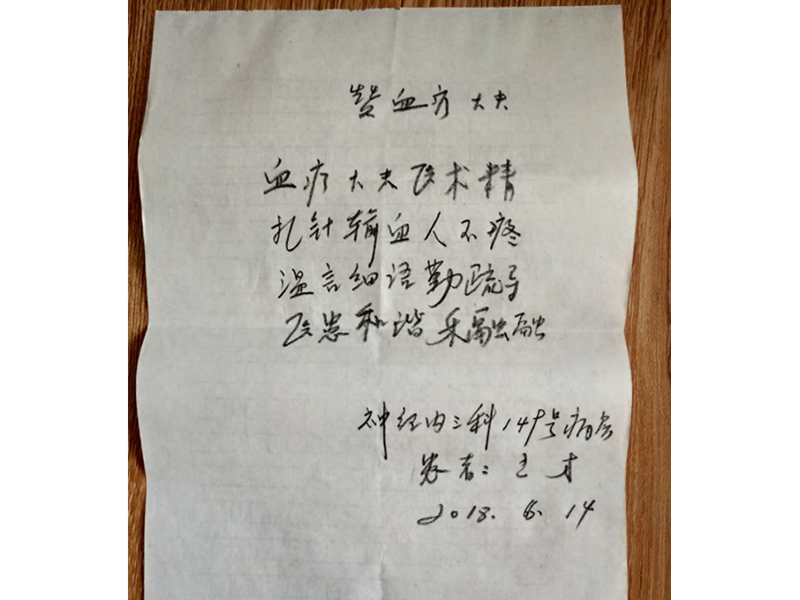 赞血疗大夫
血疗大夫医术精
扎针输血人不疼
温言细语勤疏导
医患和谐乐融融
神经内三科149号病房
患者:王才
2018.6.14